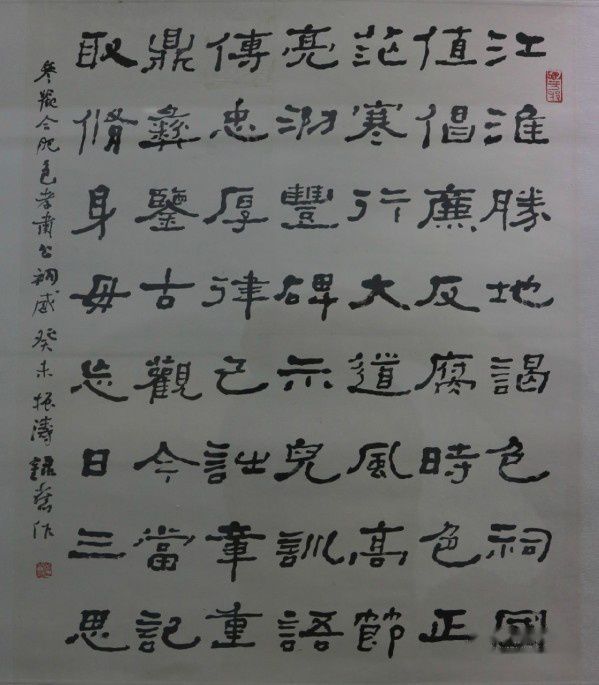 江淮勝地謁包祠國
值倡廉反腐時色正
茫寒行大道風高節
亮泐豐碑示兒訓語
傳忠厚律己章重
鼎彝鑒古觀今當記
取脩身毋忘日三思
參觀合肥包孝肅公祠感 癸未 振濤錄舊作